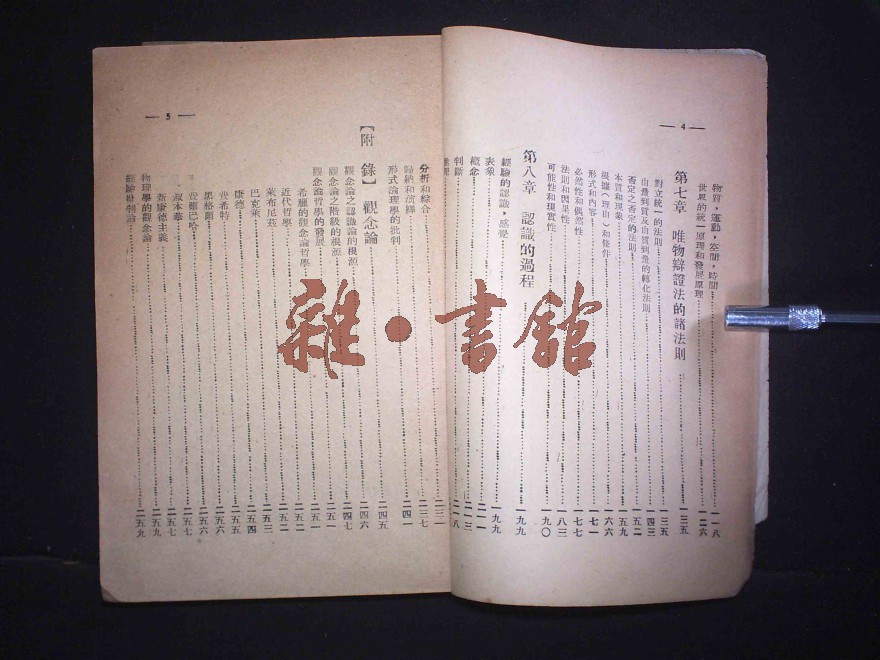 — 4 —
物質，運動，空間，時間……一一八
世界的統一原理和發展原理……一二六
第七章　唯物辯證法的諸法則……一三五
對立統一的法則……一三五
由量到質及由質到量的轉化法則……一四三
否定之否定的法則……一五二
本質和現象……一五九
根據（理由）和條件……一六六
形式和內容……一七一
必然性和偶然性……一七七
法則和因果性……一八三
可能性和現實性……一九〇
第八章　認識的過程……一九九
經驗的認識，感覺……一九九
表象……二一一
概念……二一三
判斷……二一八
— 5 —
分析和綜合……二三七
歸納和演繹……二四一
形式論理學的批判……二四五
【附　錄】觀念論
觀念論之認識論的根源……二四六
觀念論之階級的根源……二四七
觀念論哲學的發展……二五一
希臘的觀念論哲學……二五一
近代哲學……二五二
萊布尼茲……二五二
巴克萊……二五三
康德……二五四
費希特……二五五
黑格爾……二五六
費爾巴哈……二五六
叔本華……二五七
新康德主義……二五七
物理學的觀念論……二五九
經驗批判論……二五九
雜·書館